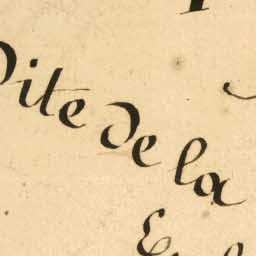 Dite de la